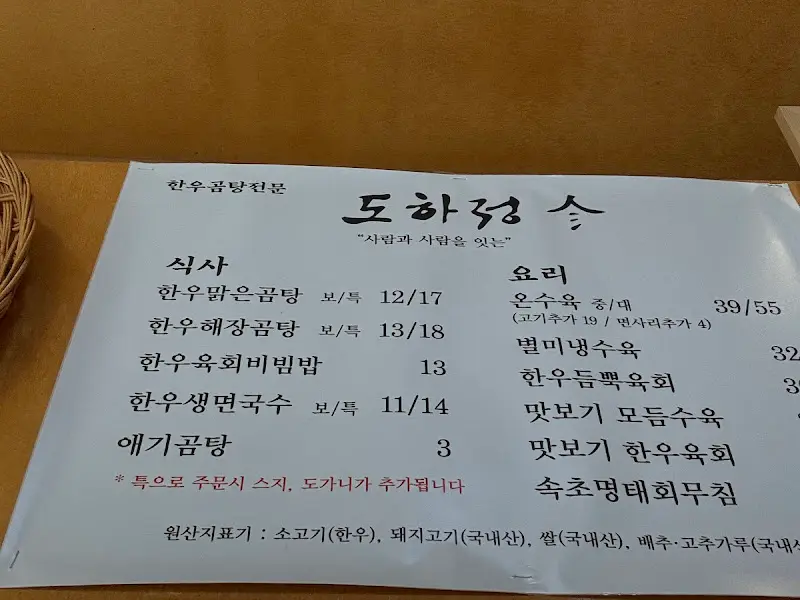 한우곰탕전문
도하정
"사람과 사람을 잇는"
식사
한우맑은곰탕 보/특 12/17
한우해장곰탕 보/특 13/18
한우육회비빔밥 13
한우생면국수 보/특 11/14
애기곰탕 3
* 특으로 주문시 스지, 도가니가 추가됩니다
요리
온수육 중/대 39/55
(고기추가 19 / 면사리추가 4)
별미냉수육 32
한우듬뿍육회
맛보기 모듬수육
맛보기 한우육회
속초명태회무침
원산지표기 : 소고기(한우), 돼지고기(국내산), 쌀(국내산), 배추·고추가루(국내산